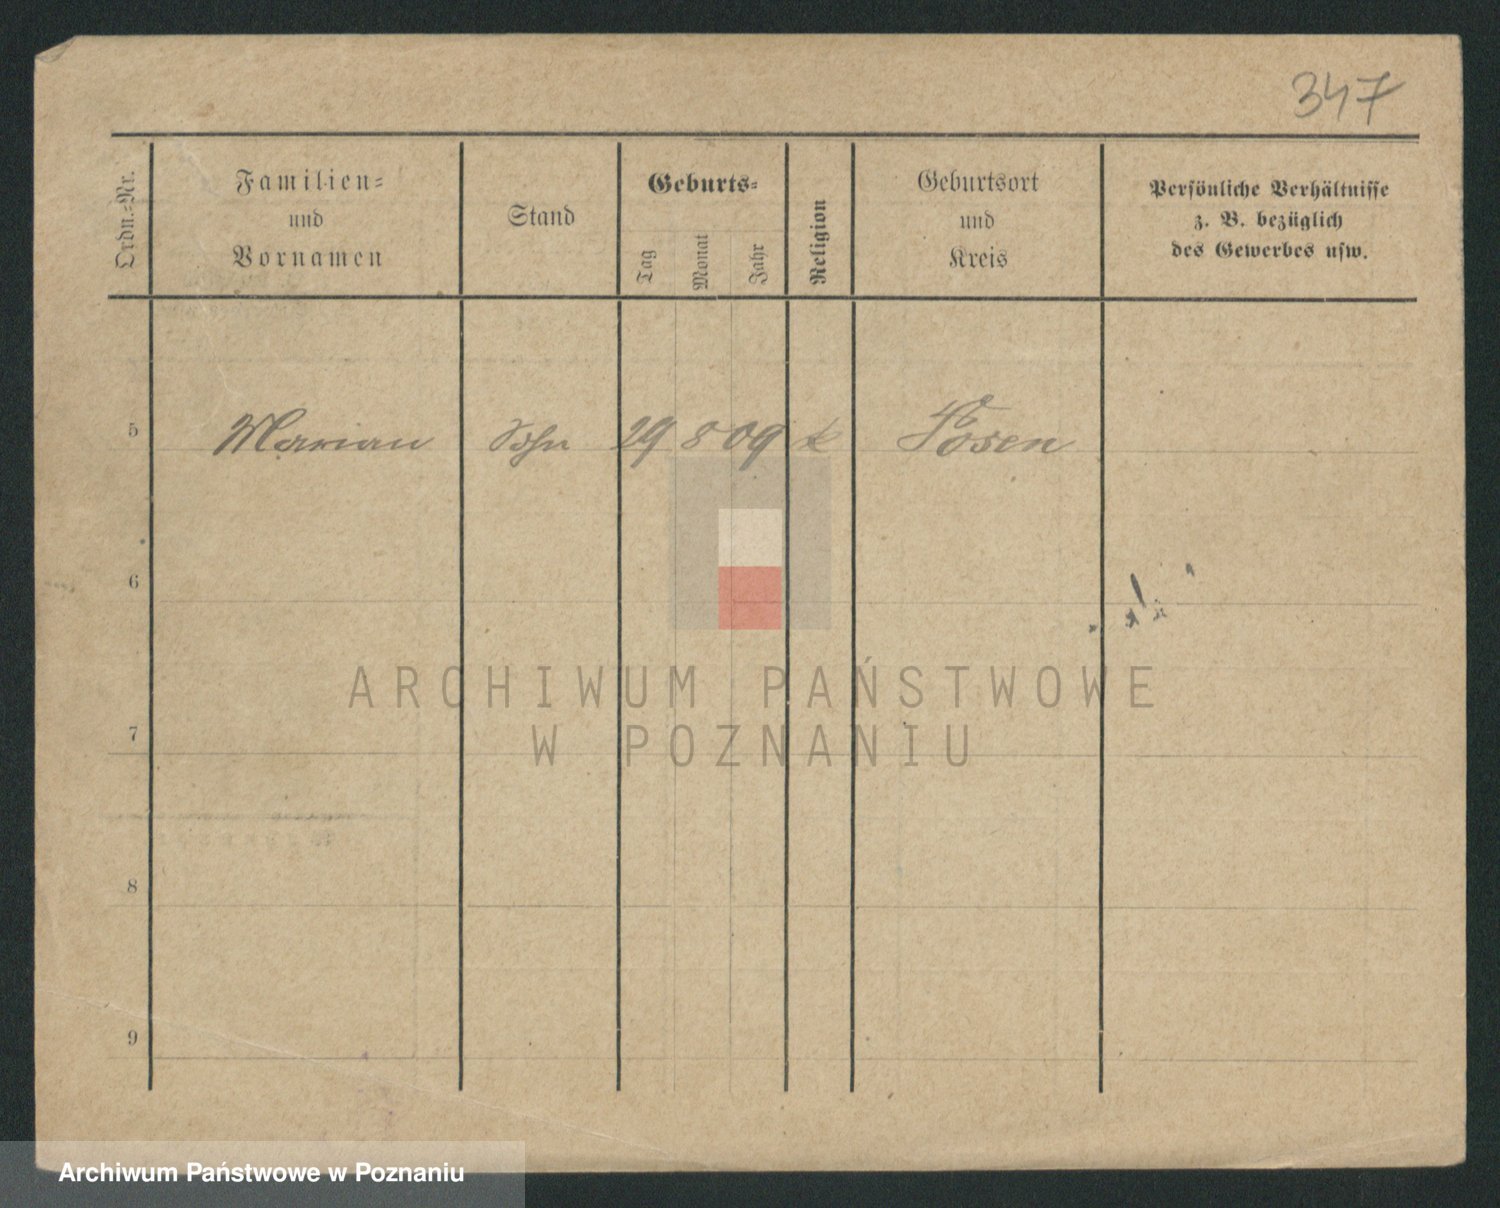 347
Ordn.-Nr.
Familien-
und
Vornamen
Stand
Geburts-
Tag
Monat
Jahr
Religion
Geburtsort
und
Kreis
Persönliche Verhältnisse
z. B. bezüglich
des Gewerbes usw.
5 Marian Sohn 29 8 09 k Posen
6
7
8
9
ARCHIWUM PAŃSTWOWE
W POZNANIU
Archiwum Państwowe w Poznaniu